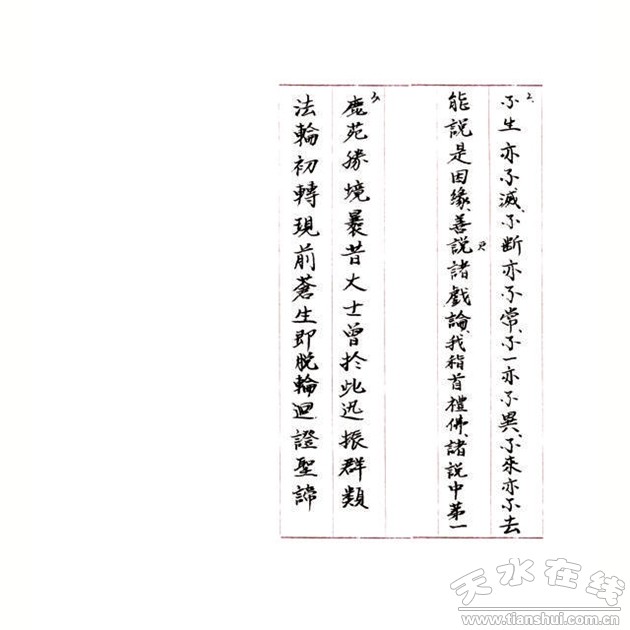 2.不生亦不滅、不断亦不常、不一亦不異、不來亦不去
能說是因緣、善說諸戲論、我稽首禮佛、諸說中第一
鹿苑勝境曩昔大士曾於此迅振群類
法輪初轉現前蒼生即脫輪迴證聖諦
天水在线
www.tianshui.com.cn